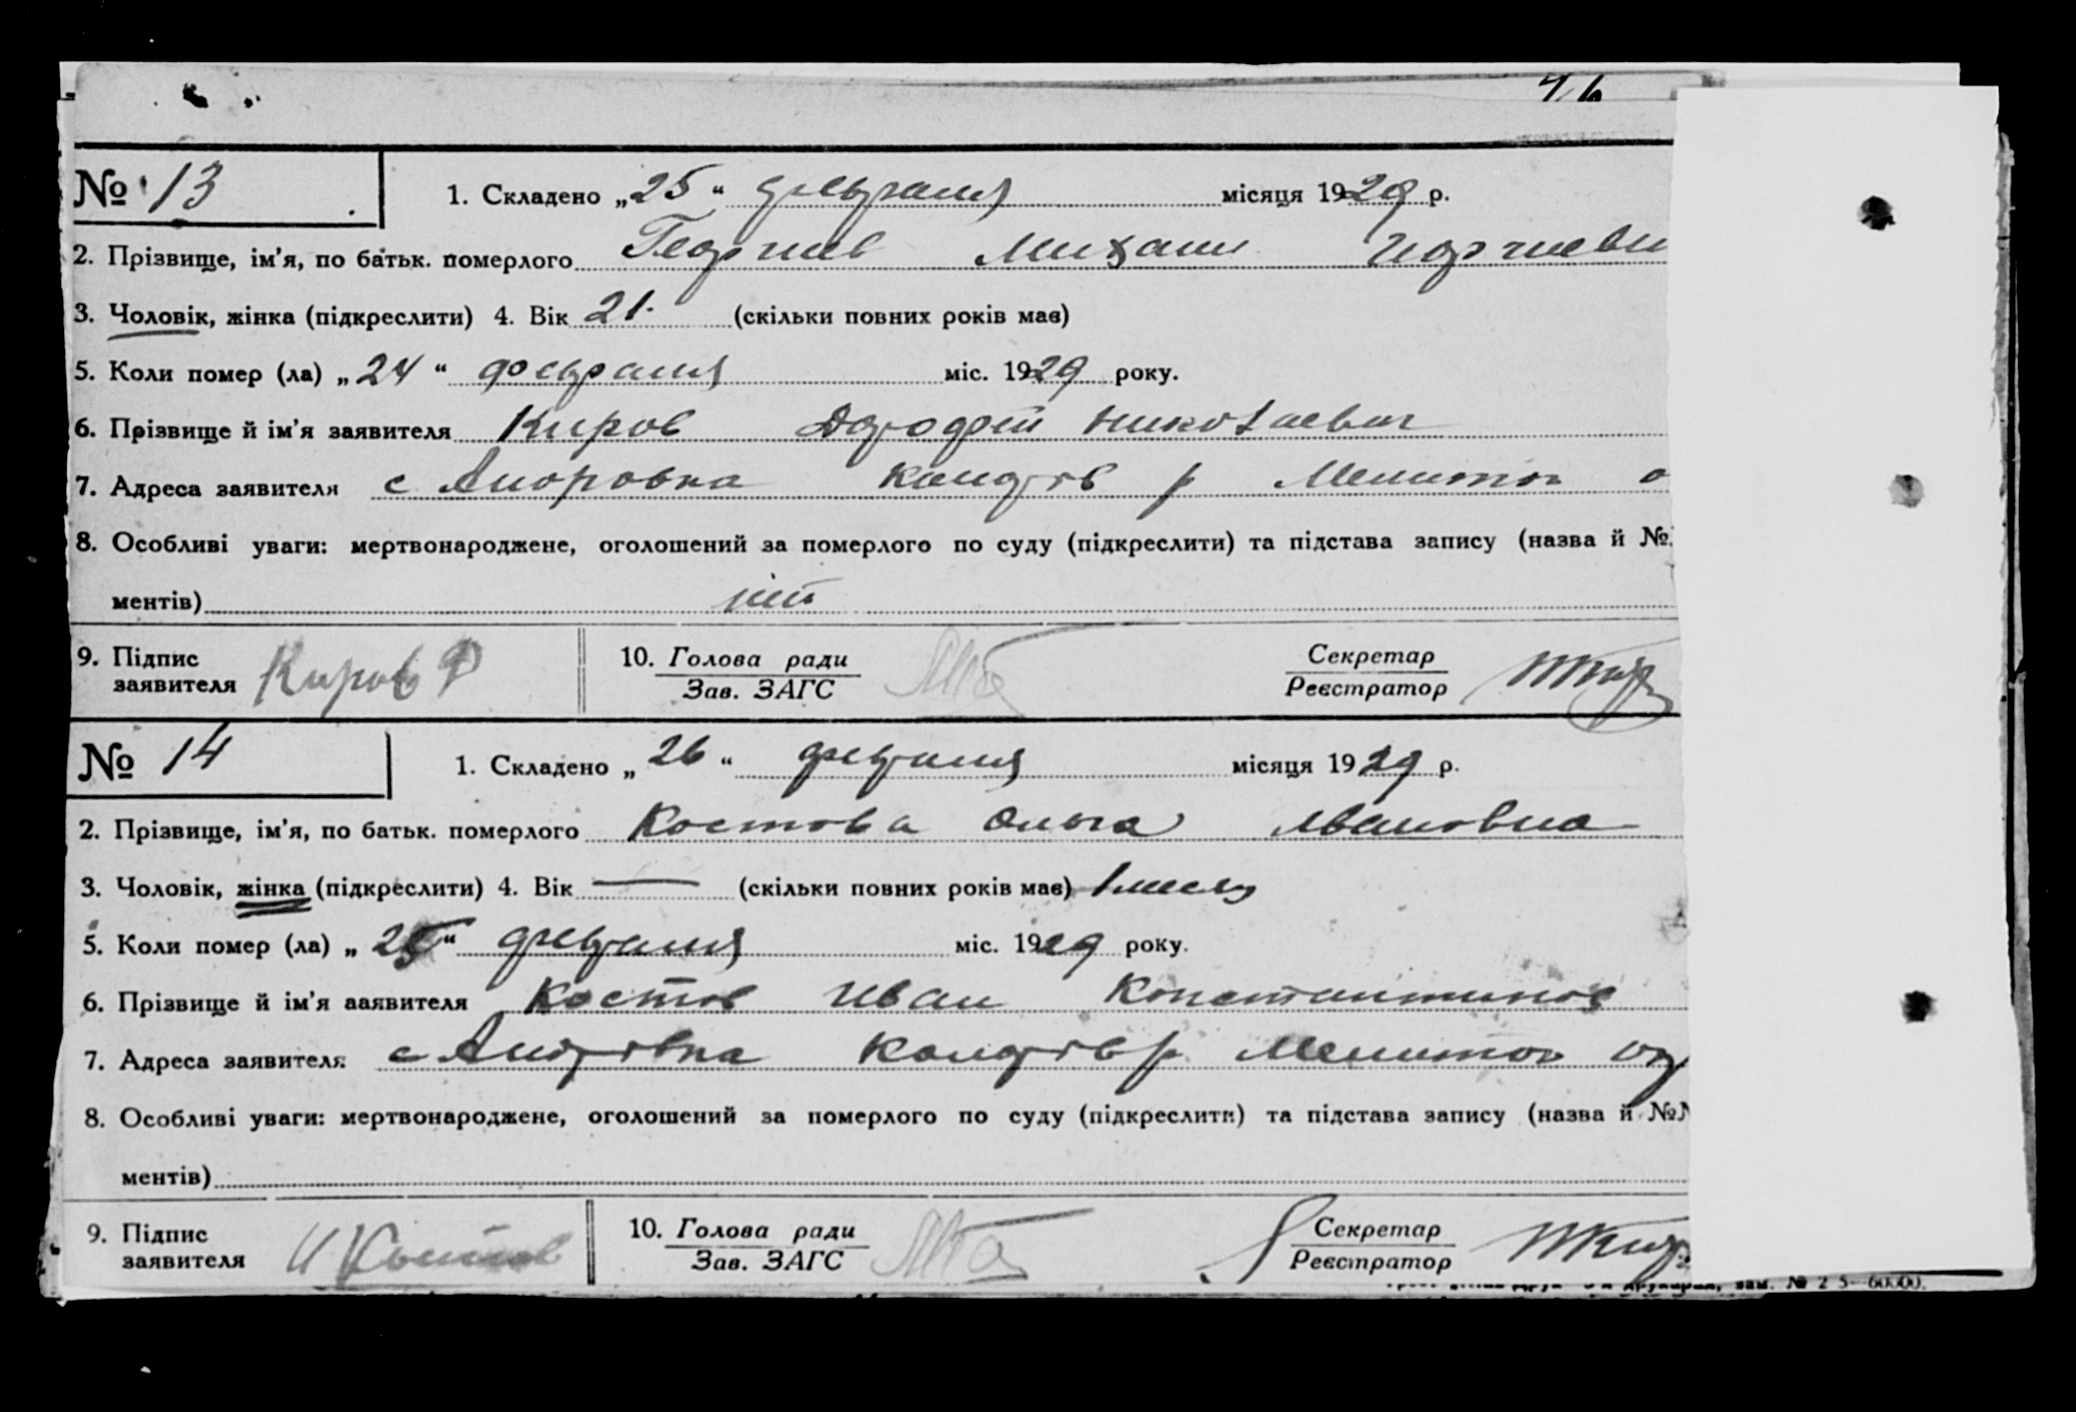 № 13
1. Складено „25“ февраля місяця 1929 р.
2. Прізвище, ім'я, по батьк. померлого Георгиев Михаил
3. Чоловік, жінка (підкреслити) 4. Вік 21 (скільки повних років має)
5. Коли помер (ла) „24“ февраля міс. 1929 року.
6. Прізвище й ім'я заявителя Киров Николаевич
7. Адреса заявителя с р Мелитоп о
8. Особливі уваги: мертвонароджене, оголошений за померлого по суду (підкреслити) та підстава запису (назва й №
ментів)
9. Підпис заявителя Киров Ф 10. Голова ради Зав. ЗАГС Секретар Реєстратор
№ 14
1. Складено „26“ февраля місяця 1929 р.
2. Прізвище, ім'я, по батьк. померлого Костова Ольга Ивановна
3. Чоловік, жінка (підкреслити) 4. Вік — (скільки повних років має) 1 месяц
5. Коли помер (ла) „25“ февраля міс. 1929 року.
6. Прізвище й ім'я ааявителя Костов Иван Константинов
7. Адреса заявителя с р Мелитоп
8. Особливі уваги: мертвонароджене, оголошений за померлого по суду (підкреслити) та підстава запису (назва й №
ментів)
9. Підпис заявителя И Костов 10. Голова ради Зав. ЗАГС Секретар Реєстратор